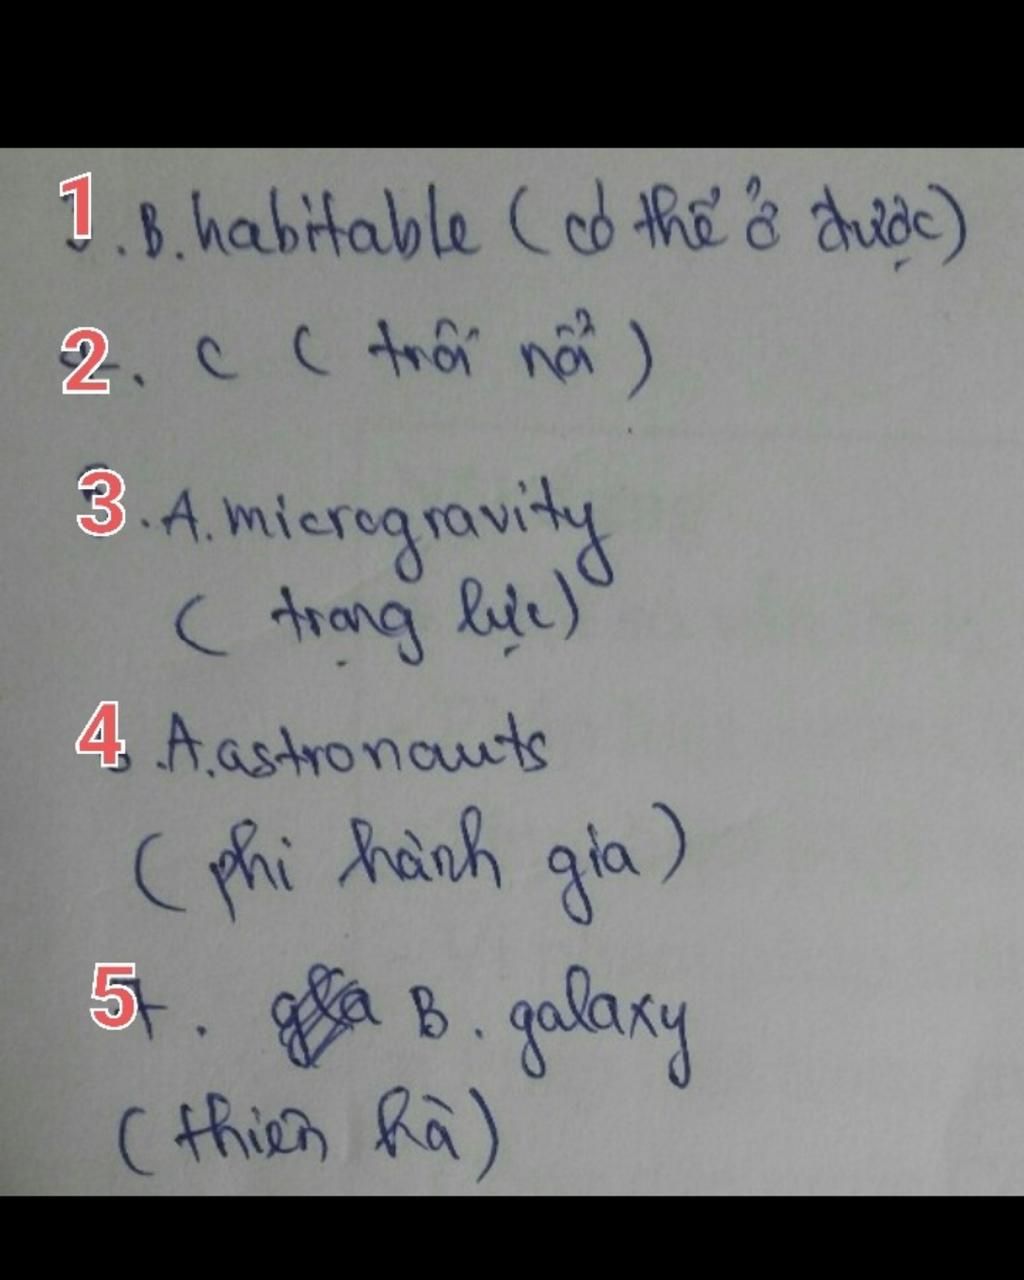 1. B. habitable (có thể ở được)
2. C (trôi nổi)
3. A. microgravity
(trọng lực)
4. A. astronauts
(phi hành gia)
5. B. galaxy
(thiên hà)